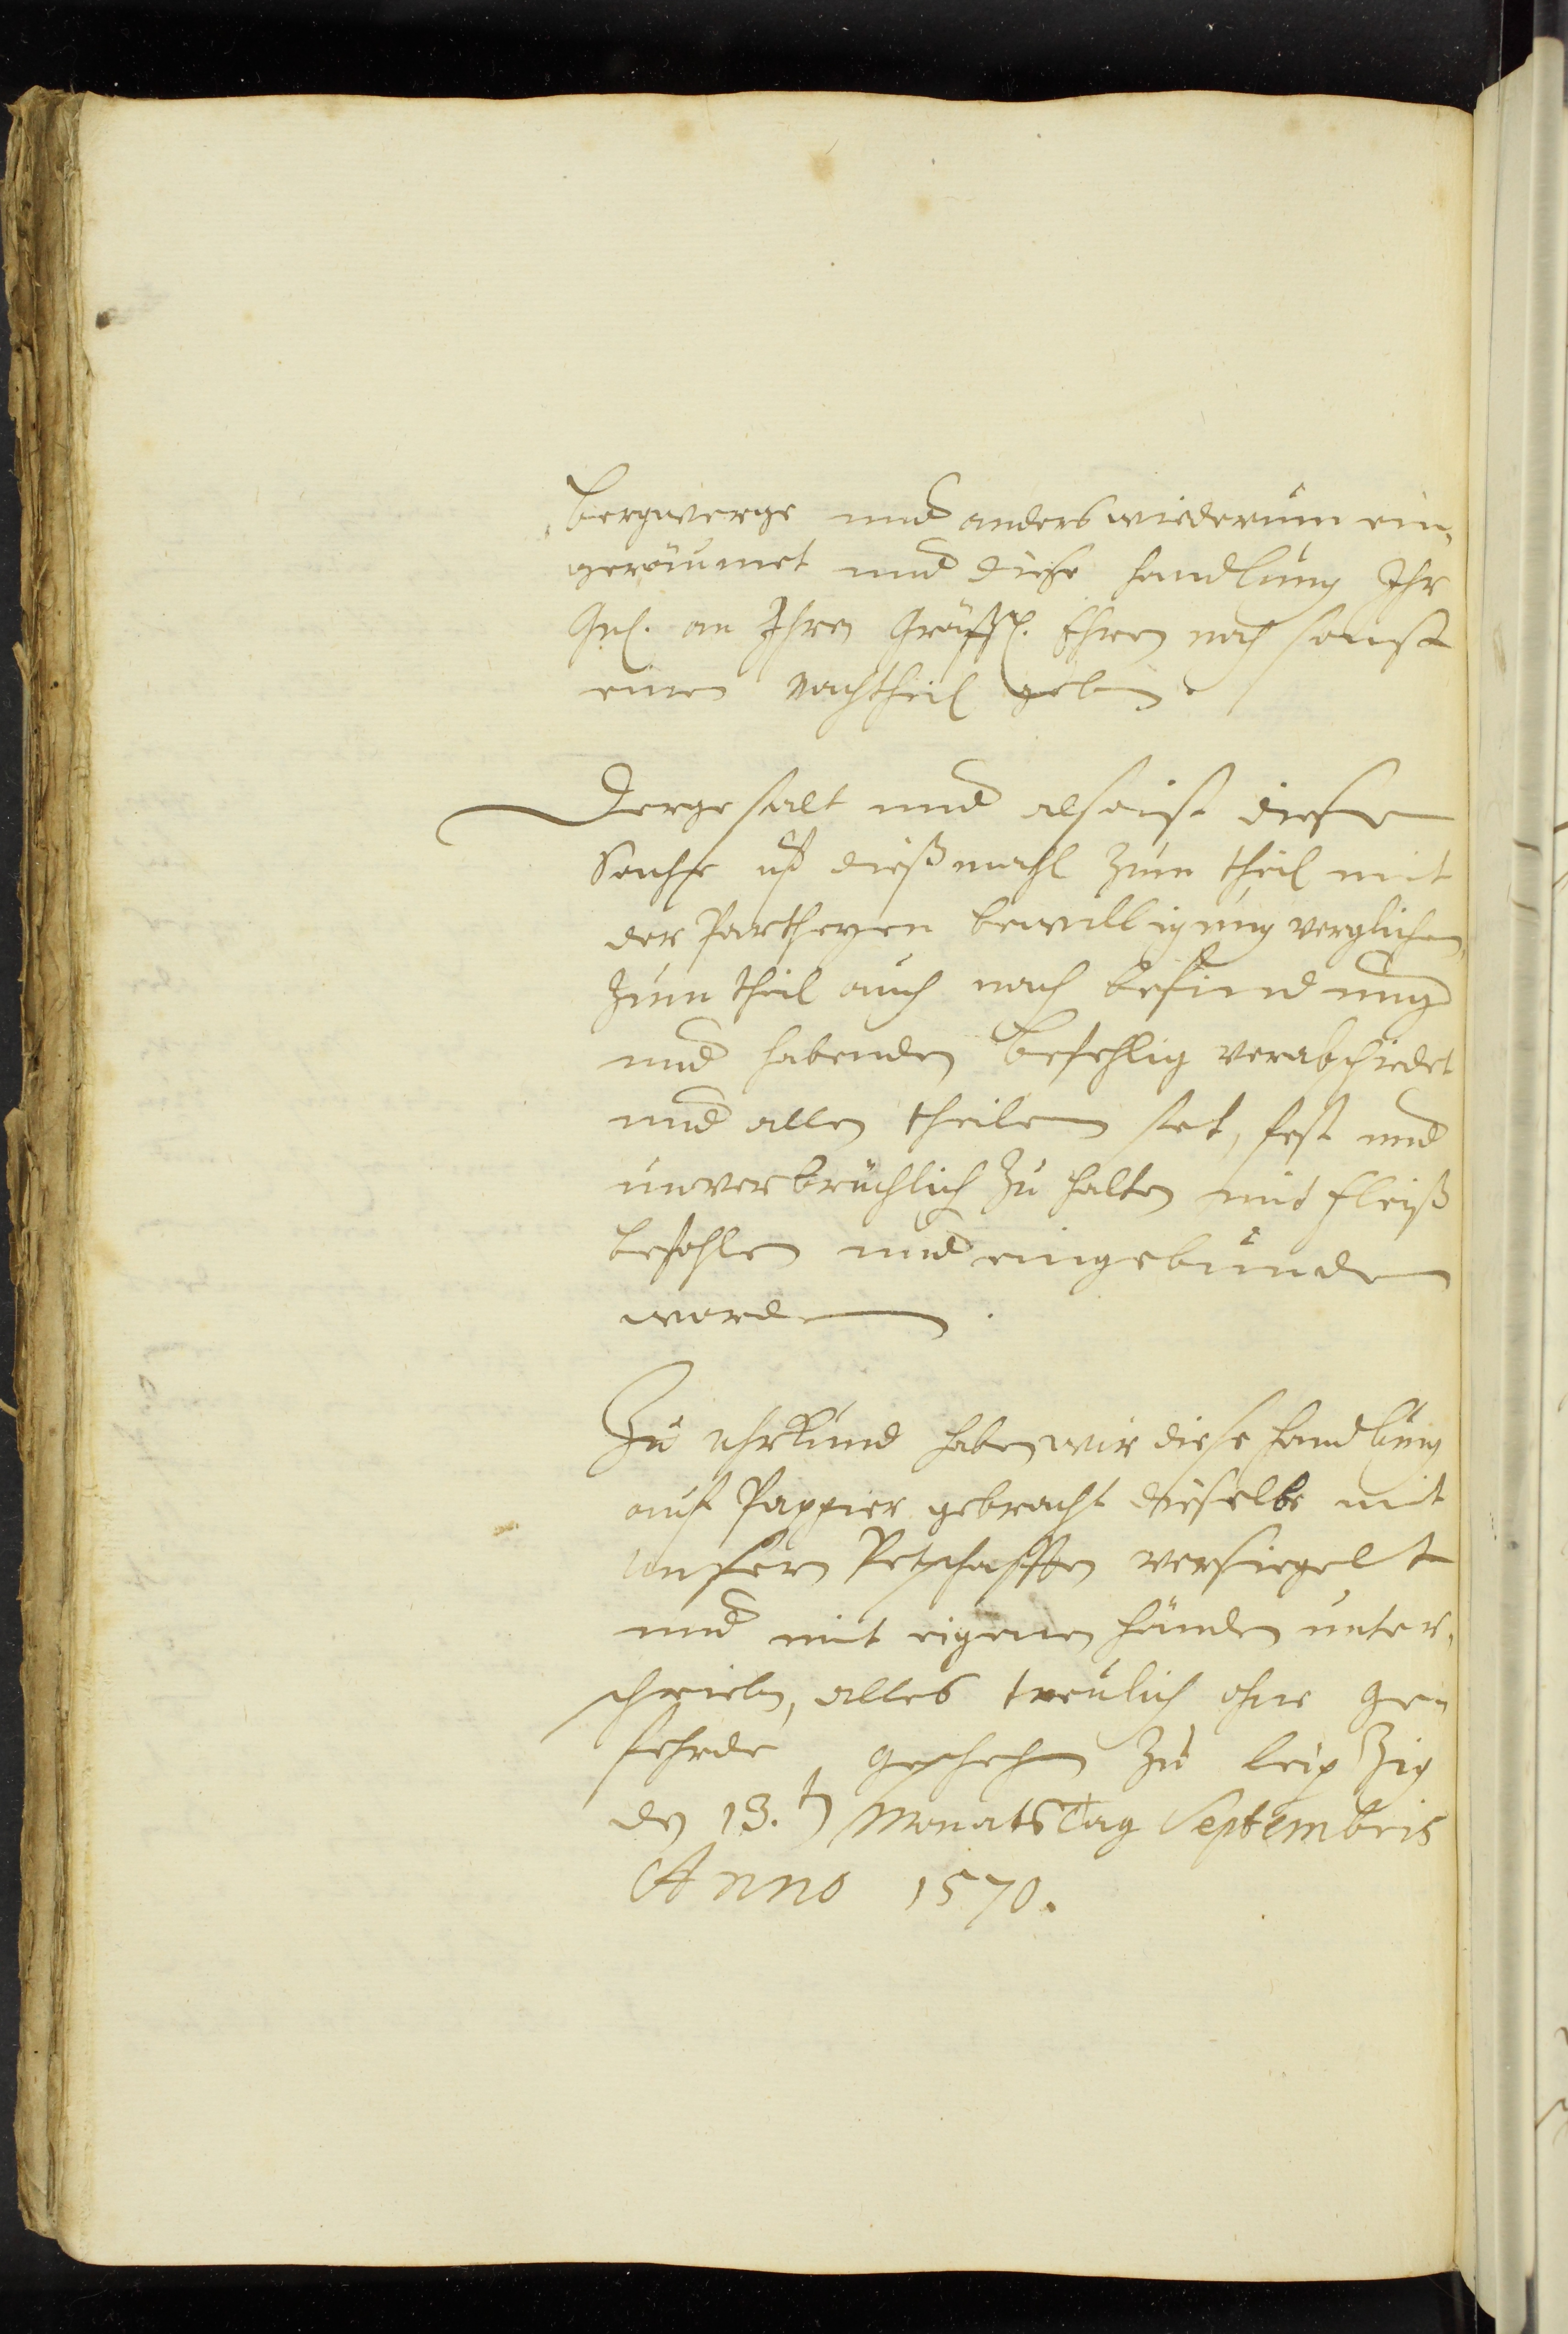 bergwerge und anders wiederum ein,
geräumet und diese handlung Ihr
Gnl. an Ihren Gräffl. Ehren noch sonst
einen nachtheil geben.
Dergestalt und also ist diese
Sache uf dießmahl zum theil mit
der Partheyen bewilligung verglichen,
zum theil auch nach befindung
und habenden befehlig verabschiedet
und allen theilen stet, fest und
unverbrüchlich zu halten mit fleiß
befohlen und eingebunden
worden.
Zu uhrkund haben wir diese handlung
auf Pappier gebracht dieselbe mit
unsern Petschafften versiegelt
und mit eigenen händen unter,
schrieben, alles treulich ohne ge,
fehrde geschehen zu leipzig
den 13.ten MonatsTag Septembris
Anno 1570.